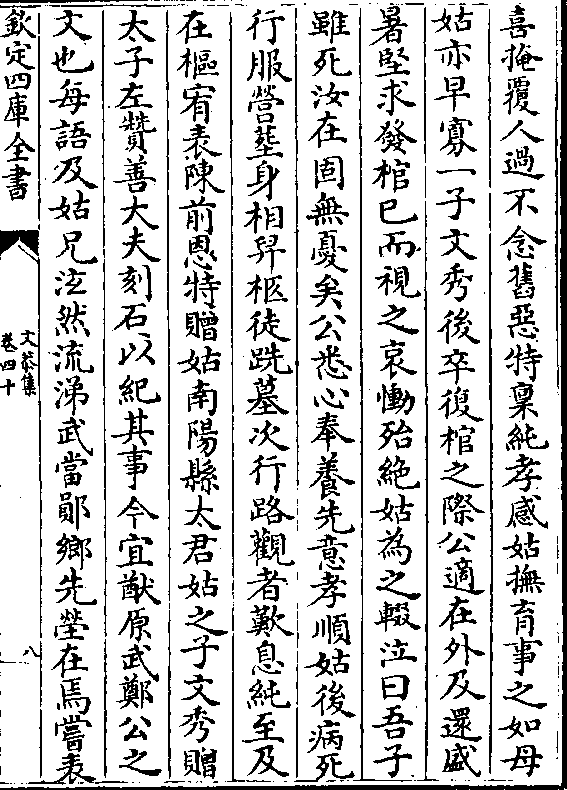 喜掩覆人過不念舊惡特稟純孝感姑撫育事之如母
姑亦早寡一子文秀後卒復棺之際公適在外及還盛
暑堅求發棺已而視之哀慟殆絶姑為之輟泣曰吾子
雖死汝在固無憂矣公悉心奉養先意孝順姑後病死
行服營塟身相舁柩徒跣墓次行路觀者歎息純至及
在樞宥表陳前恩特贈姑南陽縣太君姑之子文秀贈
太子左贊善大夫刻石以紀其事今宣猷原武鄭公之
文也每語及姑兄泫然流涕武當鄖鄉先塋在焉嘗表
欽定四庫全書
文恭集
卷四十
八